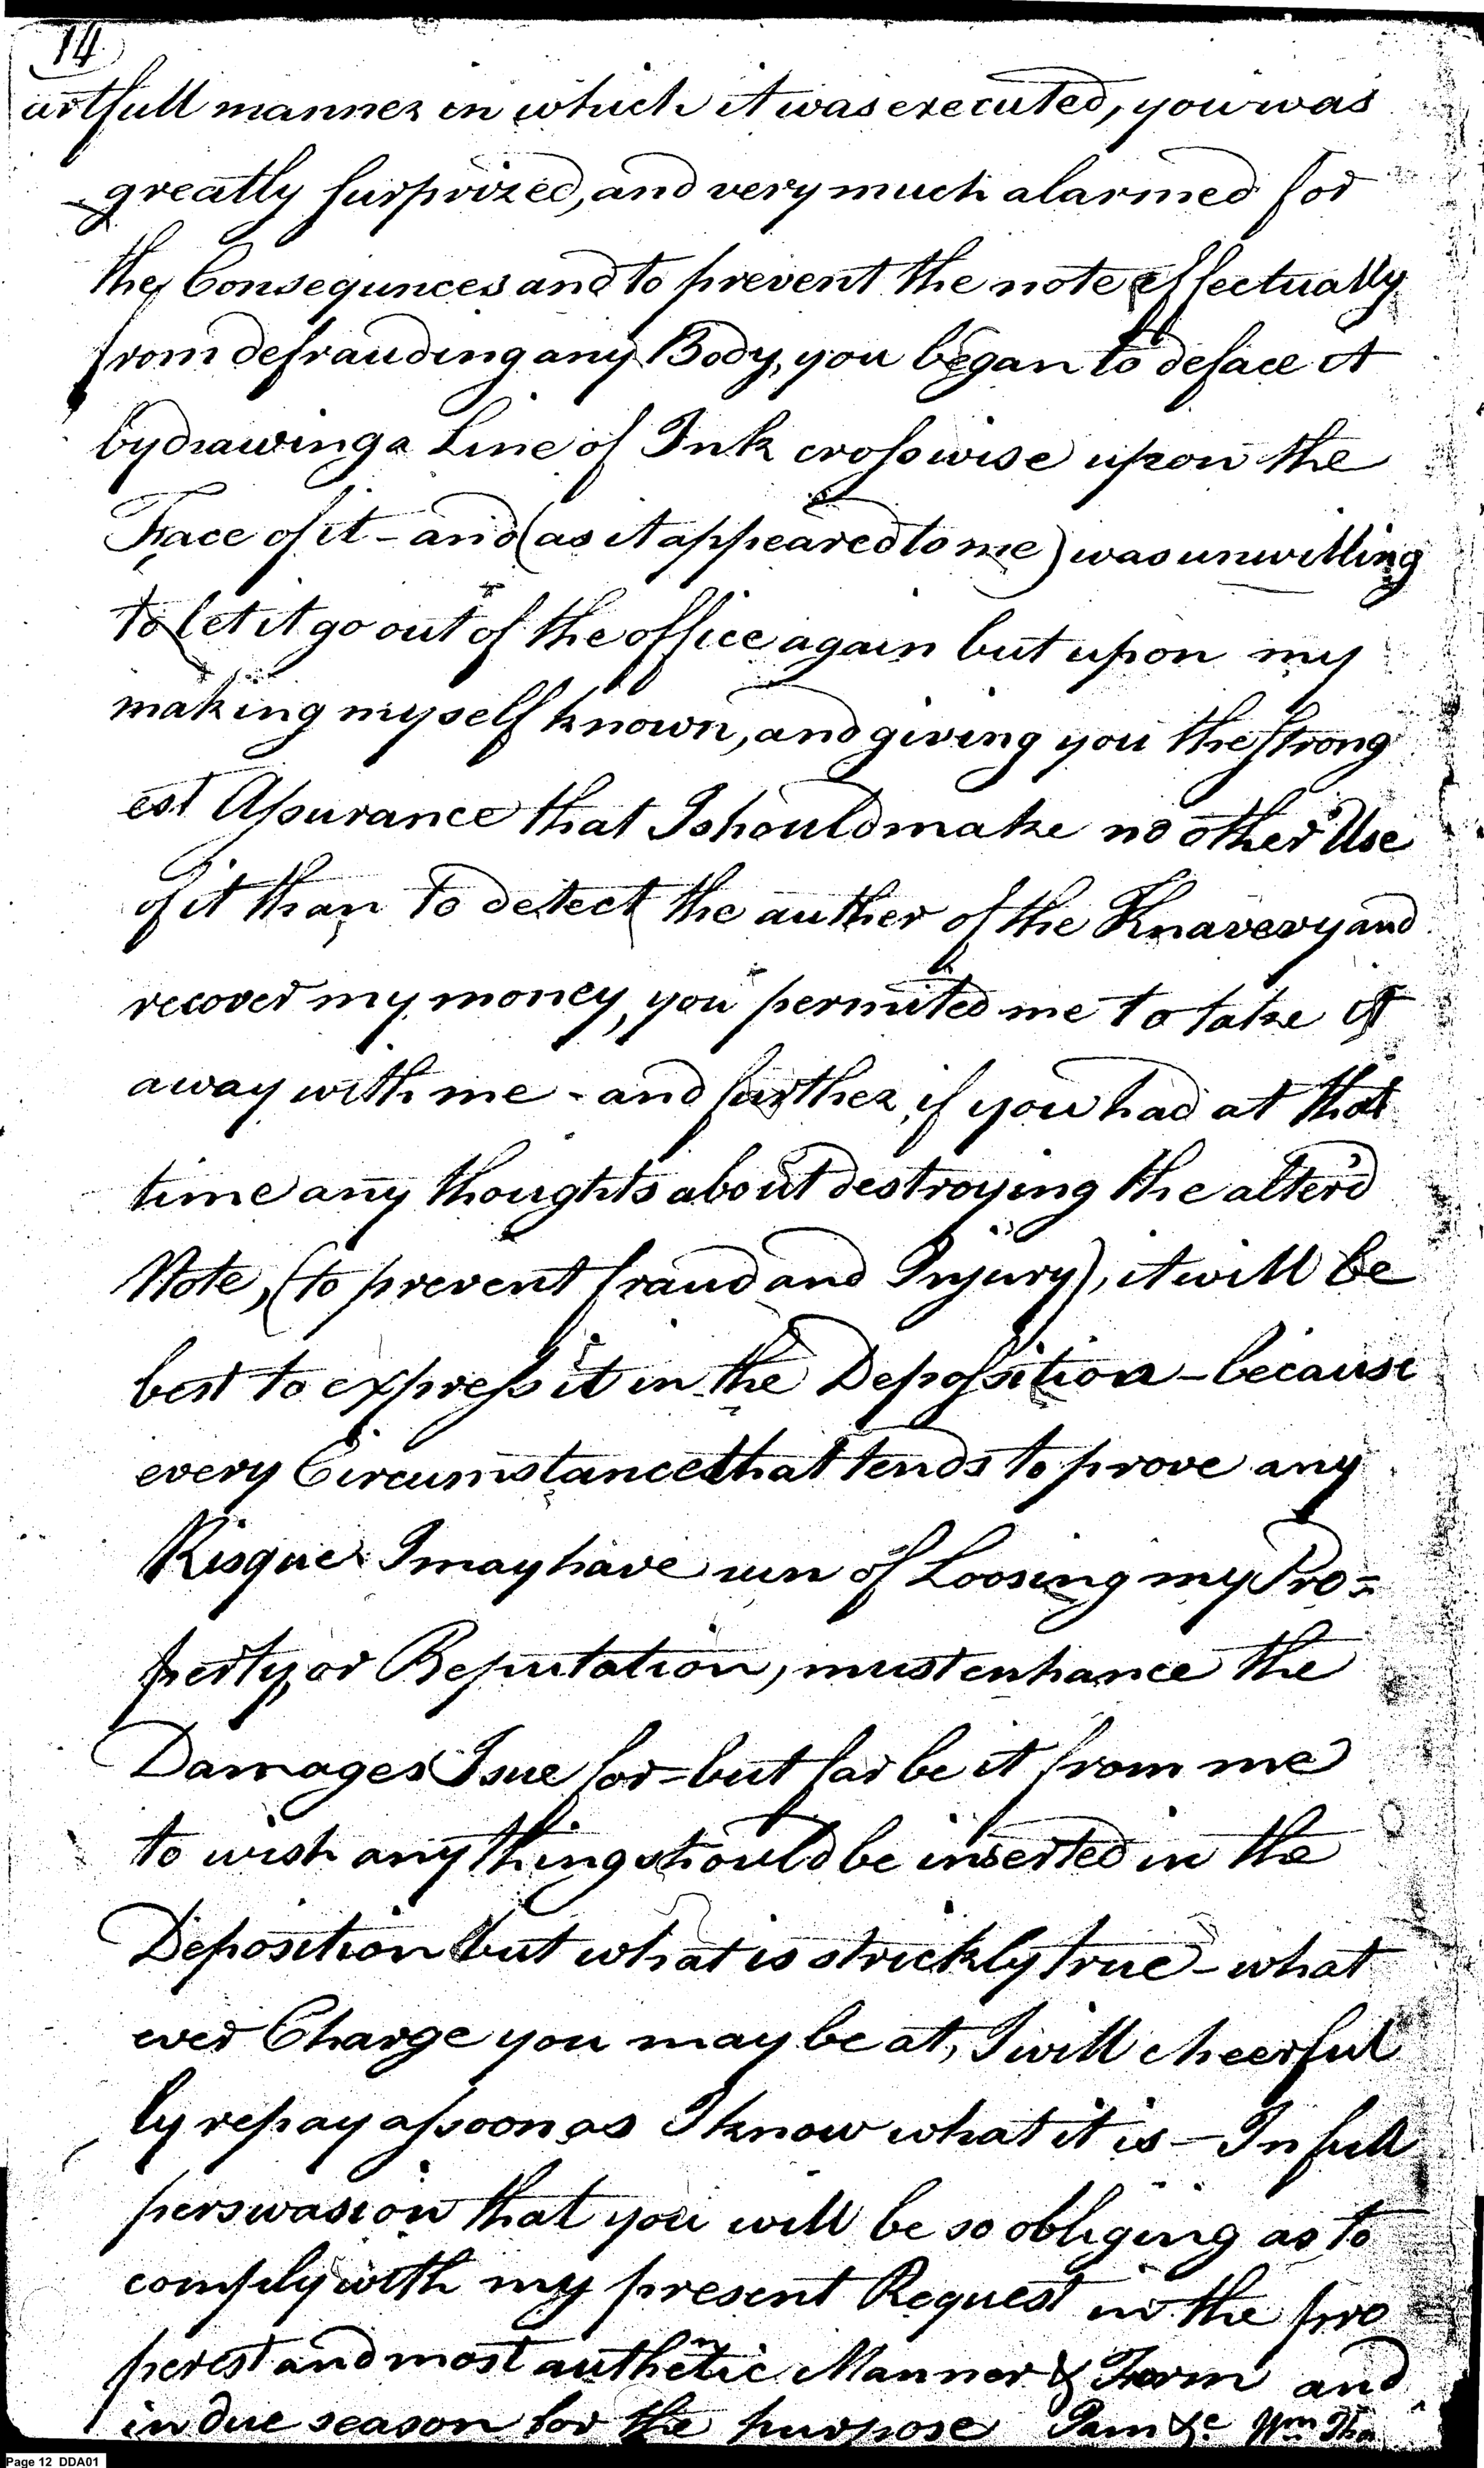 14
artfull manner in which it was executed, you was
greatly surprized, and very much alarmed for
the Consequnces and to prevent the note effectually
from defrauding any Body, you began to deface it
by drawing a Line of Ink crosswise upon the
Face of it - and (as it appeared to me) was unwilling
to let it go out of the office again but upon my
making myself known, and giving you the strong
est Assurance that I should make no other Use
of it than to detect the auther of the Knavery and
recover my money, you permited me to take it
away with me - and further, if you had at that
time any thoughts about destroying the alter'd
Note, (to prevent fraud and Injury), it will be
best to express it in the Depossition - because
every Circumstance that tends to prove any
Risque I may have run of Loosing my Pro=
perty, or Reputation, must enhance the
Damages I sue for = but far be it from me
to wish any thing should be inserted in the
Deposition but what is stricktly true - what
ever Charge you may be at, I will cheerful
ly repay assoon as I know what it is - In full
perswasion that you will be so obliging as to
comply with my present Request in the pro
perest and most authentic Manner & Form and
in due season for the purpose I am &c. Wm
Page 12 DDA01